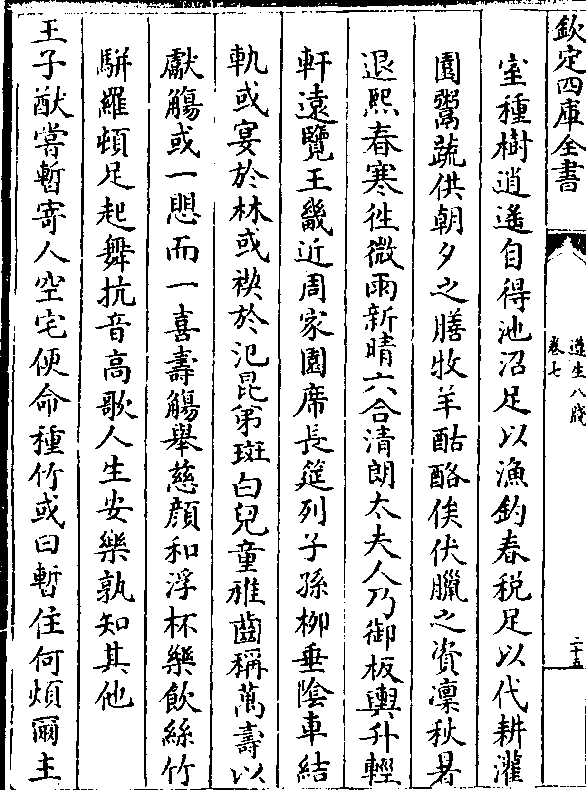 欽定四庫全書
遵生八牋
卷七
二十五
室種樹逍遙自得池沼足以漁釣春税足以代耕灌
園鬻蔬供朝夕之膳牧羊酤酪俟伏臘之資凜秋暑
退熙春寒徃微雨新晴六合清朗太夫人乃御板輿升輕
軒遠覽王畿近周家園席長筵列子孫栁垂陰車結
軌或宴於林或禊於汜昆第斑白兒童稚齒稱萬壽以
獻觴或一懼而一喜壽觴舉慈顔和浮杯樂飲絲竹
駢羅頓足起舞抗音高歌人生安樂孰知其他
王子猷嘗暫寄人空宅便命種竹或曰暫住何煩爾主